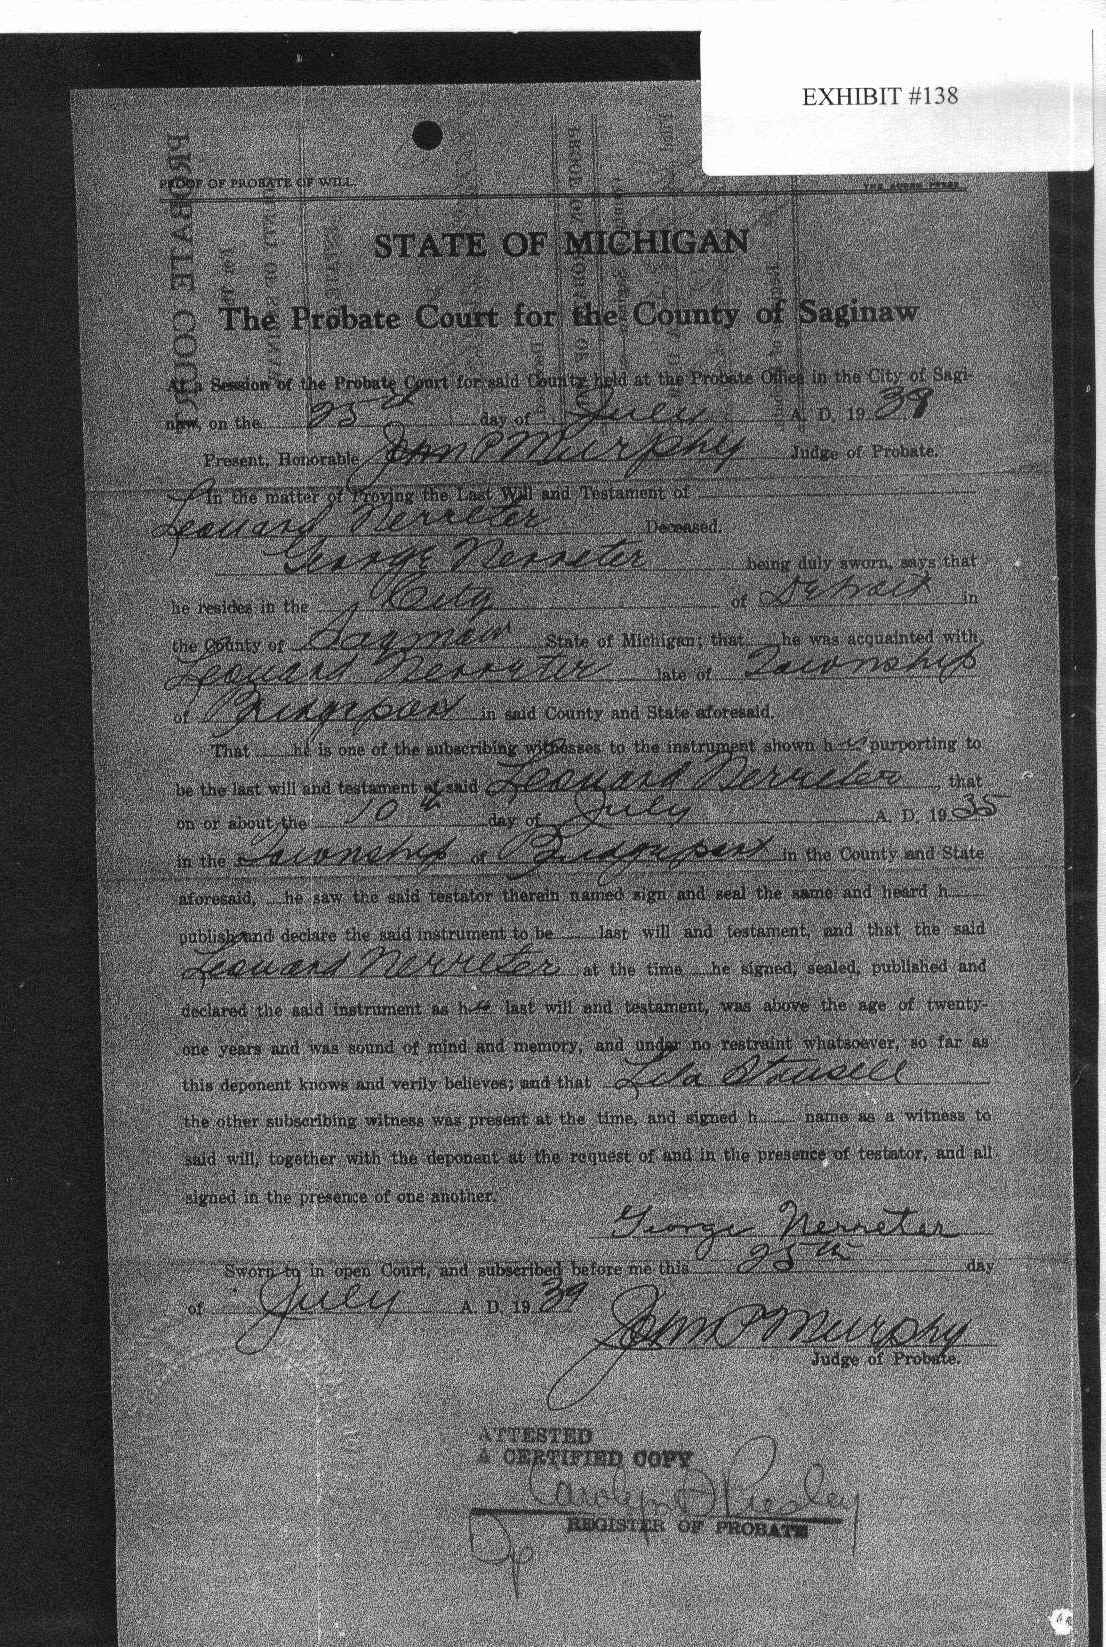 EXHIBIT #138
PROOF OF PROBATE OF WILL.
STATE OF MICHIGAN
The Probate Court for the County of Saginaw
At a Session of the Probate Court for said County, held at the Probate Office in the City of Sagi-
naw, on the 25th day of July A. D. 1939
Present, Honorable John P Murphy Judge of Probate.
In the matter of Proving the Last Will and Testament of
Leonard Nerreter Deceased.
George Nerreter being duly sworn, says that
he resides in the City of Detroit in
the County of Saginaw State of Michigan; that he was acquainted with
Leonard Nerreter late of Township
of Bridgeport in said County and State aforesaid.
That he is one of the subscribing witnesses to the instrument shown h purporting to
be the last will and testament of said Leonard Nerreter, that
on or about the 10th day of July A. D. 1935
in the Township of Bridgeport in the County and State
aforesaid, he saw the said testator therein named sign and seal the same and heard h
publish and declare the said instrument to be last will and testament, and that the said
Leonard Nerreter at the time he signed, sealed, published and
declared the said instrument as his last will and testament, was above the age of twenty-
one years and was sound of mind and memory, and under no restraint whatsoever, so far as
this deponent knows and verily believes; and that Lila Stansell
the other subscribing witness was present at the time, and signed h name as a witness to
said will, together with the deponent at the request of and in the presence of testator, and all
signed in the presence of one another.
George Nerreter
Sworn to in open Court, and subscribed before me this 25th day
of July A. D. 1939
John P Murphy
Judge of Probate.
ATTESTED
A CERTIFIED COPY
Carolyn Presley
REGISTER OF PROBATE